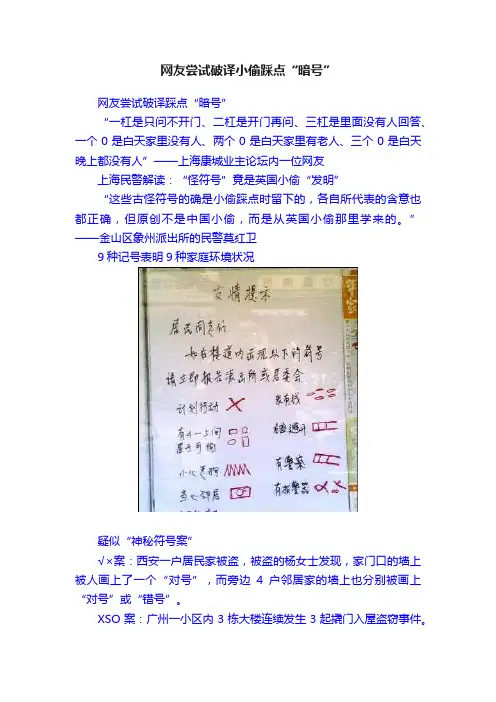 网友尝试破译小偷踩点“暗号”
网友尝试破译踩点“暗号”
“一杠是只问不开门、二杠是开门再问、三杠是里面没有人回答、
一个0是白天家里没有人、两个0是白天家里有老人、三个0是白天
晚上都没有人”——上海康城业主论坛内一位网友
上海民警解读：“怪符号”竟是英国小偷“发明”
“这些古怪符号的确是小偷踩点时留下的，各自所代表的含意也
都正确，但原创不是中国小偷，而是从英国小偷那里学来的。”
——金山区象州派出所的民警莫红卫
9种记号表明9种家庭环境状况
友情提示
居民同志们
如在楼道内出现以下的符号
请立即报告派出所或居委会
计划行动
家有钱
小心恶狗
有警察
当心邻居
有报警器
疑似“神秘符号案”
√×案：西安一户居民家被盗，被盗的杨女士发现，家门口的墙上
被人画上了一个“对号”，而旁边4户邻居家的墙上也分别被画上
“对号”或“错号”。
XSO案：广州一小区内3栋大楼连续发生3起撬门入屋盗窃事件。